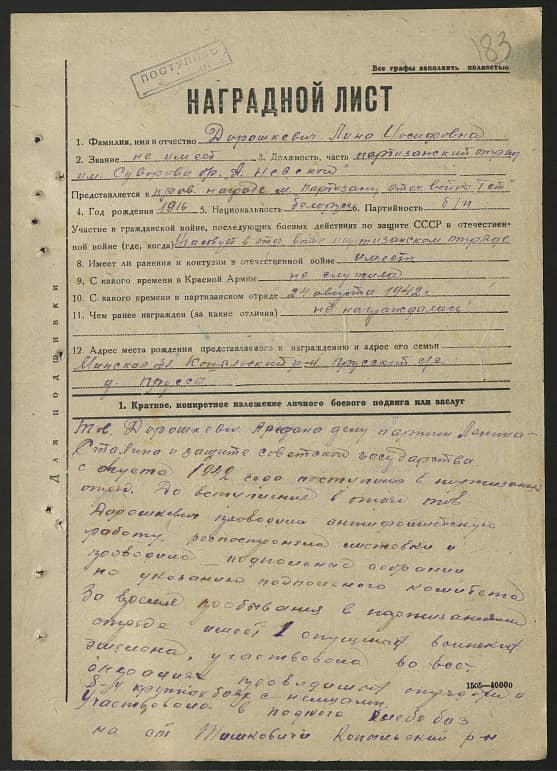 183
ПОСТУПИЛО
Все графы заполнять полностью
НАГРАДНОЙ ЛИСТ
1. Фамилия, имя и отчество Дорошкевич Лина Иосифовна
2. Звание не имеет 3. Должность, часть партизанский отряд
им. Суворова бр. А. Невский
Представляется к прав. награде м. Партизану отеч. войны I ст"
4. Год рождения 1916 5. Национальность белорусь 6. Партийность б/п
Участие в гражданской войне, последующих боевых действиях по защите СССР в отечествен-
ной войне (где, когда) Участвует в отеч. войне партизанском отряде
8. Имеет ли ранения и контузии в отечественной войне имеет
9. С какого времени в Красной Армии не служила
10. С какого времени в партизанском отряде 24 августа 1942 г.
11. Чем ранее награжден (за какие отличия) не награждалась
12. Адрес места рождения представляемого к награждению и адрес его семьи
Минская Копыльский р-н Прусский с/с
д. Пруссы
Для подшивки
1. Краткое, конкретное изложение личного боевого подвига или заслуг
тов Дорошкевич предана делу партии Ленина-
Сталина и защите советского государства
с августа 1942 года поступила в партизанский
отряд. До вступления в отряд тов
Дорошкевич проводила антифашистскую
работу, листовки и
проводила собрании
по указанию подпольного комитета
За время пребывания в партизанском
отряде имеет 1 воинских
эшелона, участвовала во всех
операциях проводимых отрядом и
8-ми крупных боях с немцами.
Участвовала в
на Тимковичи Копыльский р-н
1505—40000